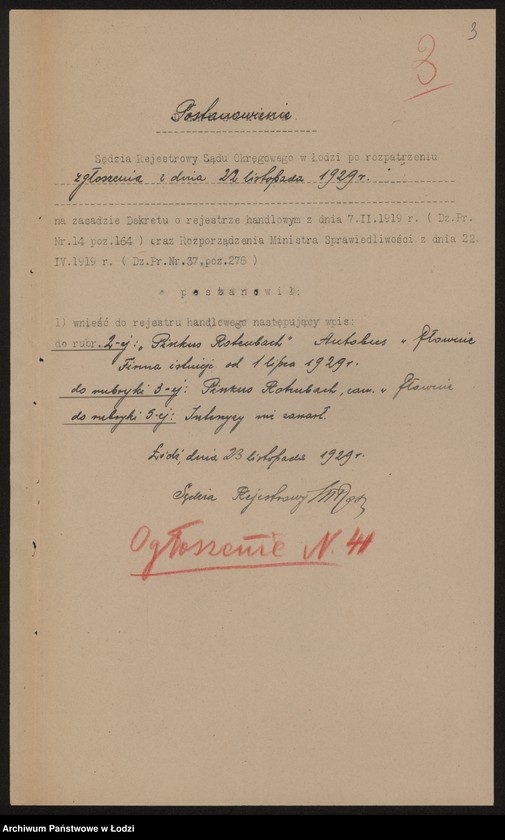 3
3
Postanowienie.
Sędzia Rejestrowy Sądu Okręgowego w Łodzi po rozpatrzeniu
zgłoszenia z dnia 22 listopada 1929 r.
na zasadzie Dekretu o rejestrze handlowym z dnia 7.II.1919 r. ( Dz.Pr.
Nr.14 poz.164 ) oraz Rozporządzenia Ministra Sprawiedliwości z dnia 22.
IV.1919 r. ( Dz.Pr.Nr.37,poz.278 )
p o s t a n o w i ł:
1) wnieść do rejestru handlowego następujący wpis:
do rubr. 2-ej: „Pinkus Rotenbach" Autobus w Głownie
Firma istnieje od 1 lipca 1929 r.
do rubryki 3-ej: Pinkus Rotenbach, zam. w Głownie
do rubryki 5-ej: Intercyzy nie zawarł.
Łódź, dnia 23 listopada 1929 r.
Sędzia Rejestrowy
Ogłoszenie N. 41
Archiwum Państwowe w Łodzi